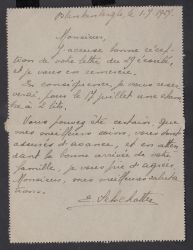 le 1.7.1929.
Monsieur,
J'accuse bonne récep-
tion de votre lettre du 29 écoulé,
et je vous en remercie.
En conséquence, je vous reser-
verai, pour le 17 juillet une cham-
bre à 2 lits.
Vous pouvez être certain, que
mes meilleurs soins, vous sont
assurés d'avance, et en atten-
dant la bonne arrivée de votre
famille, je vous prie d'agréer,
Monsieur, mes meilleures saluta-
tions.